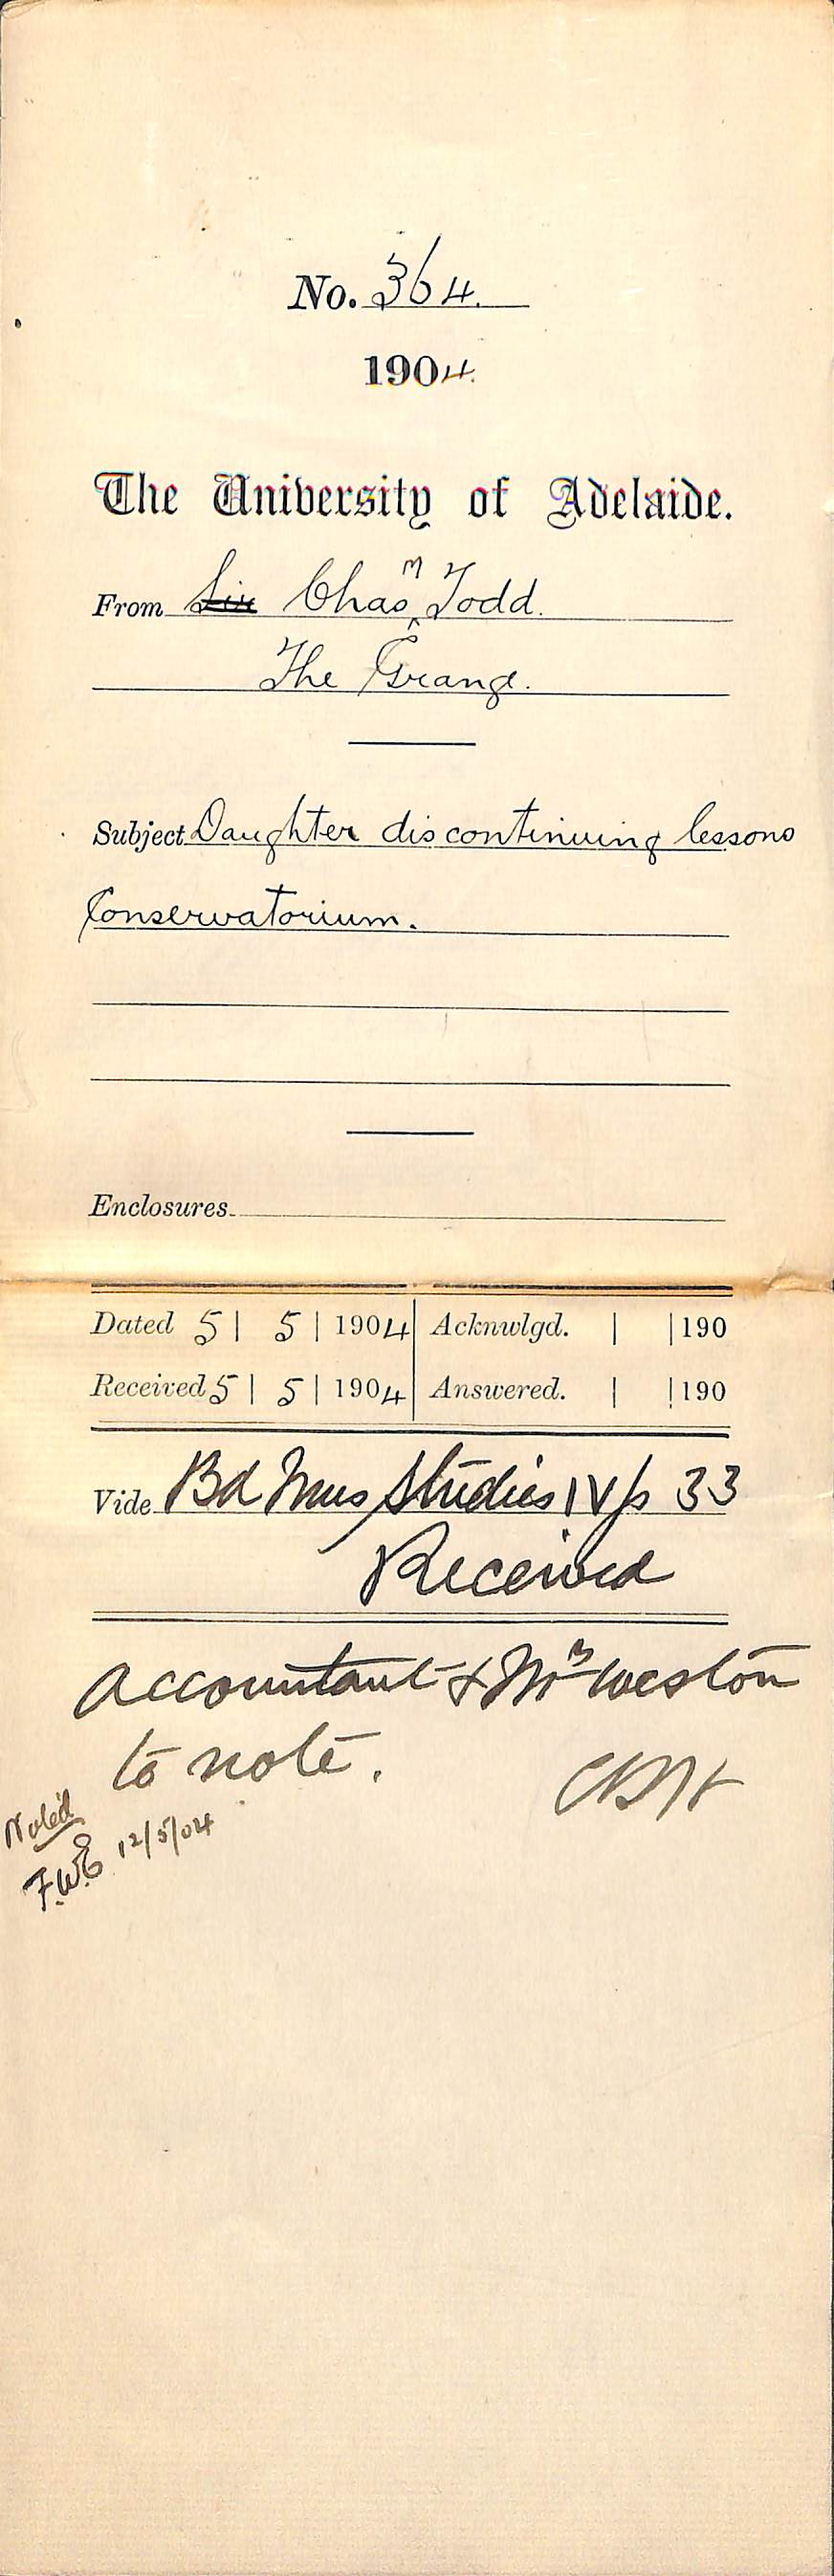 No. 364.
1904.
The University of Adelaide.
From Sir Chas M Todd.
The Grange.
Subject Daughter discontinuing lessons
Conservatorium.
Enclosures.
Dated 5 | 5 | 1904 Acknwlgd. | | 190
Received 5 | 5 | 1904 Answered. | | 190
Vide Bd Mus Studies IV p 33
Received
Accountant & Mrs Weston
to note.
Noted
F.W.E 12/5/04